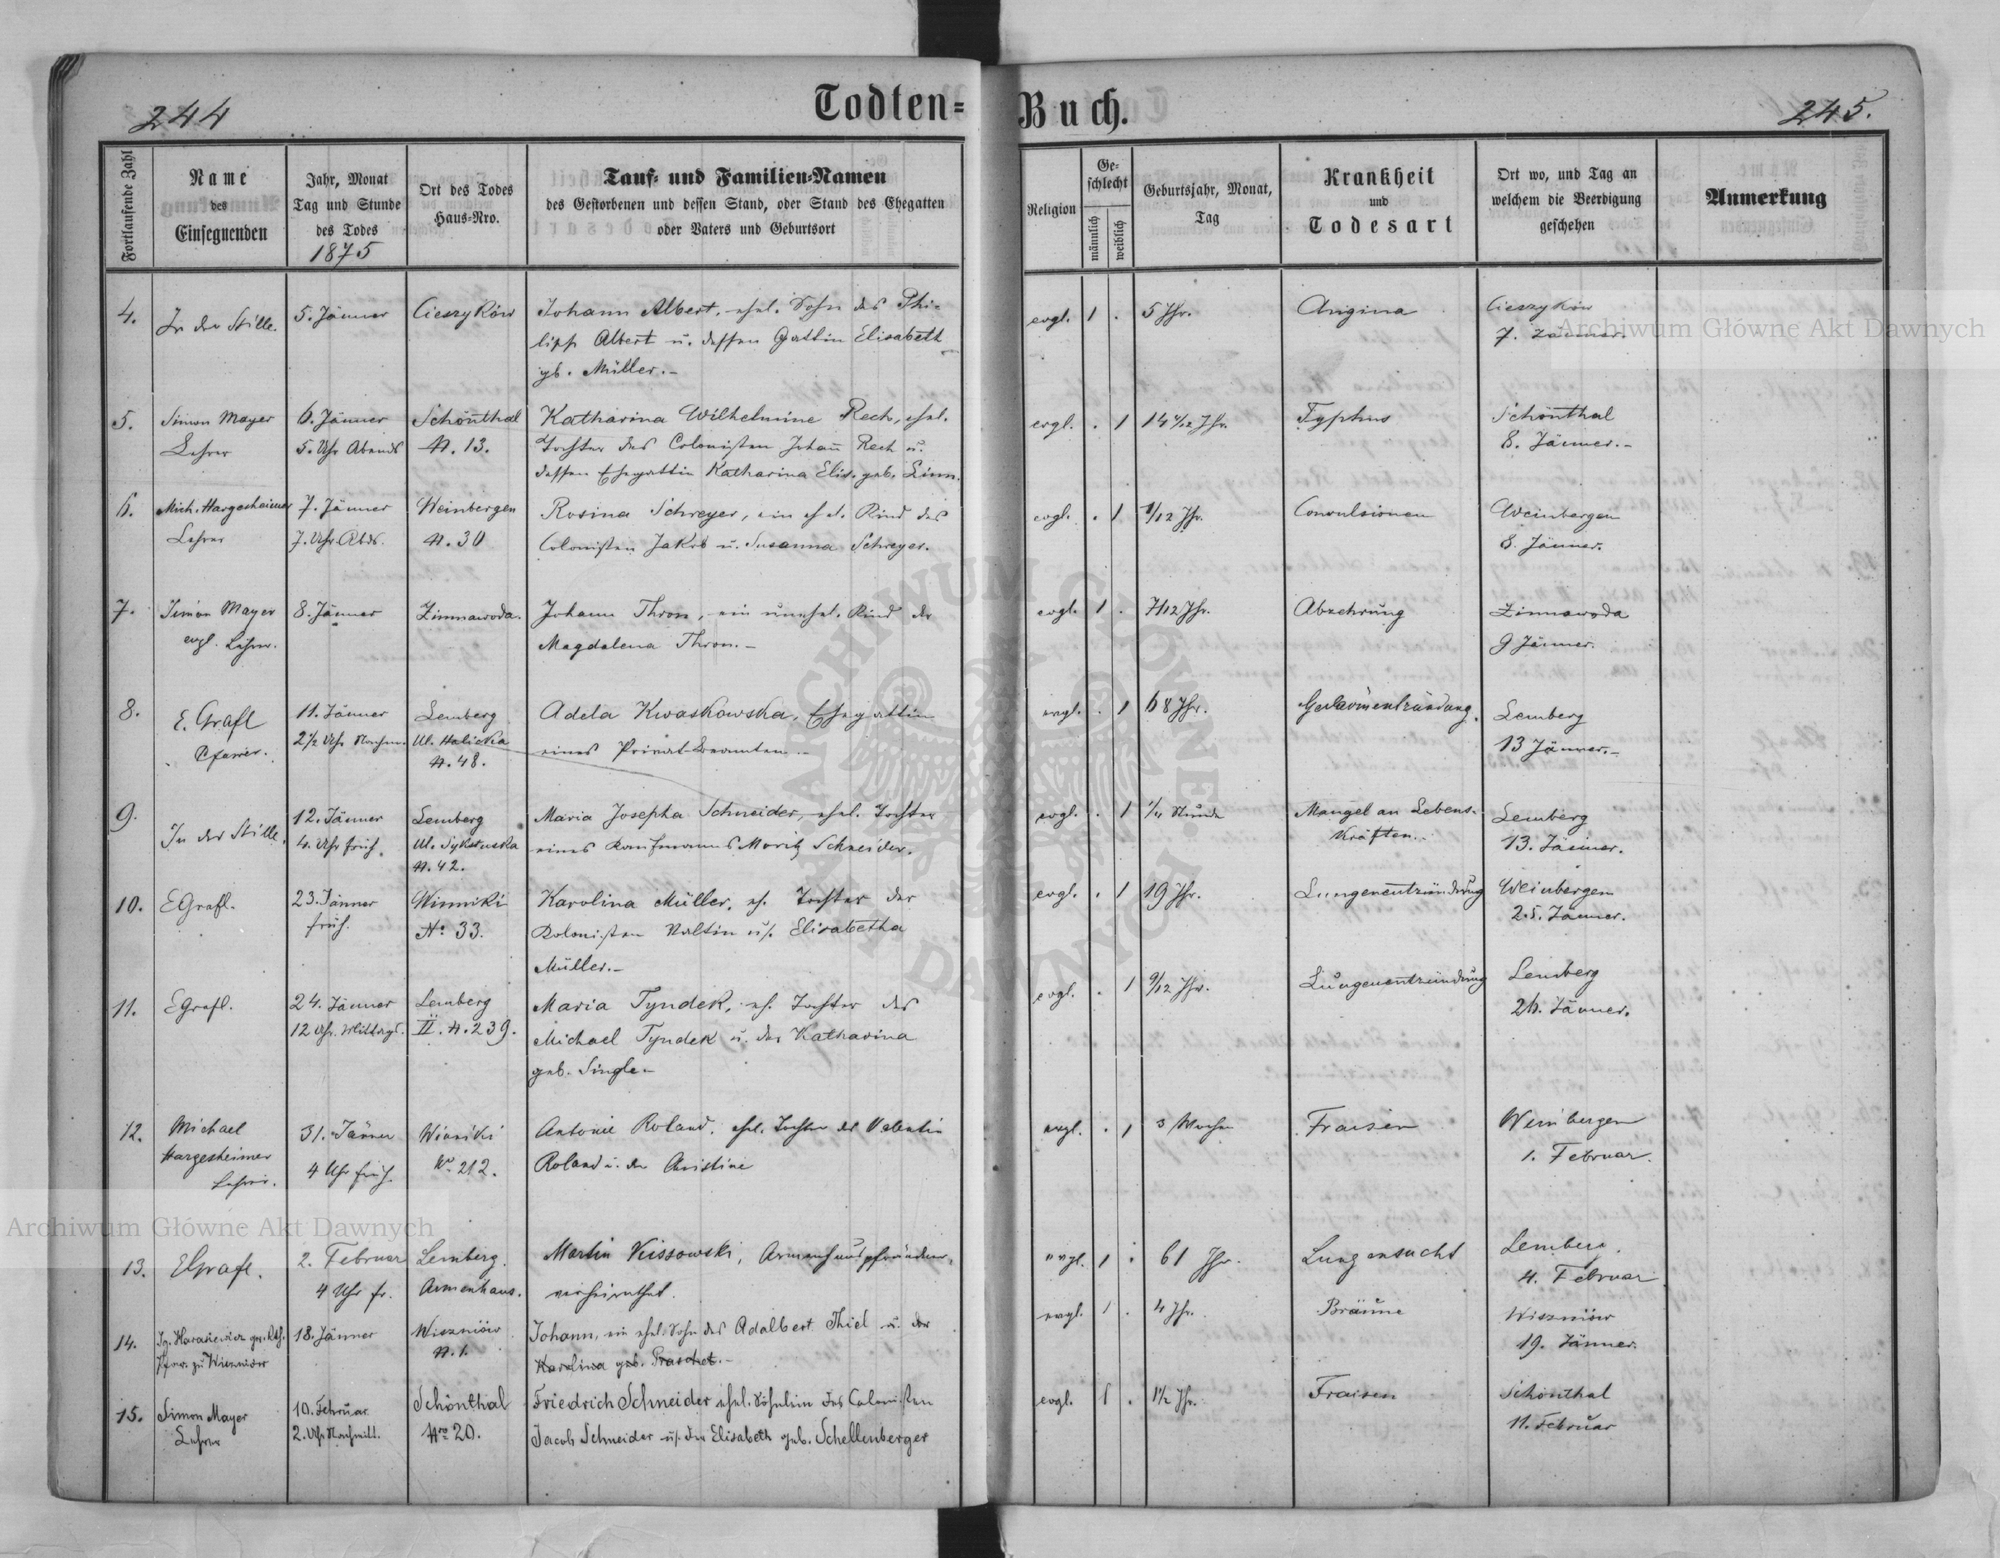 244
Todten-Buch.
245.
Fortlaufende Zahl
Name
des
Einsegnenden
Jahr, Monat
Tag und Stunde
des Todes
1875
Ort des Todes
Haus-Nro.
Tauf- und Familien-Namen
des Gestorbenen und dessen Stand, oder Stand des Ehegatten
oder Vaters und Geburtsort
Religion
Ge-
schlecht
männlich
weiblich
Geburtsjahr, Monat,
Tag
Krankheit
und
Todesart
Ort wo, und Tag an
welchem die Beerdigung
geschehen
Anmerkung
4.
In der Stille.
5. Jänner
Cieszyków
Johann Albert, ehel. Sohn des Phi-
lipp Albert u. dessen Gattin Elisabeth
gb. Müller.-
evgl. 1 .
5 Jhr.
Angina
Cieszyków
7. Jänner.
5.
Simon Mayer
Lehrer
6. Jänner
5. Uhr Abends
Schönthal
N. 13.
Katharina Wilhelmine Rech, ehel.
Tochter des Colonisten Johann Rech u.
dessen Ehegattin Katharina Elis. geb. Linn.
evgl. . 1
Typhus
Schönthal
8. Jänner.-
6.
Mich. Hargesheimer
Lehrer
7. Jänner
7. Uhr Abds.
Weinbergen
N. 30
Rosina Schreyer, ein ehel. Kind des
Colonisten Jakob u. Susanna Schreyer.
evgl. . 1
Convulsionen
Weinbergen
8. Jänner.
7.
Simon Mayer
evgl. Lehrer.
8. Jänner
Zimnawoda.
Johann Thron, ein unehel. Kind der
Magdalena Thron.-
evgl. 1 .
7/12 Jhr.
Abzehrung
Zimnawoda
9 Jänner.
8.
E. Grafl
Pfarrer.
11. Jänner
2½ Uhr Nachm.
Lemberg
Ul. Halicka
N. 48.
Adela Kwaskowska, Ehegattin
eines Privat-Beamten.-
evgl. . 1
68 Jhr.
Gedärmentzündung.
Lemberg
13 Jänner.-
9.
In der Stille.
12. Jänner
4. Uhr früh.
Lemberg
Ul. Sykstuska
N. 42.
Maria Josepha Schneider, ehel. Tochter
eines Kaufmanns Moritz Schneider.
evgl. . 1
¼ Stunde
Mangel an Lebens-
kräften.
Lemberg
13. Jänner.
10.
EGrafl.
23. Jänner
früh.
Winniki
No 33.
Karolina Müller, eh. Tochter der
Kolonisten Valtin u. Elisabetha
Müller.-
evgl. . 1
19 Jhr.
Lungenentzündung
Weinbergen
25. Jänner.
11.
EGrafl.
24. Jänner
12 Uhr. Mittags.
Lemberg
II. N. 239.
Maria Tyndek, eh. Tochter des
Michael Tyndek u. der Katharina
geb. Single.-
evgl. . 1
9/12 Jhr.
Lungenentzündung
Lemberg
26. Jänner.
12.
Michael
Hargesheimer
Lehrer.
31. Jänner
4 Uhr früh.
Winniki
No 212.
Antonie Roland, ehel. Tochter des Valentin
Roland u. der Christine
evgl. . 1
3 Wochen
Fraisen
Weinbergen
1. Februar.
13.
EGrafl.
2. Februar
4 Uhr fr.
Lemberg.
Armenhaus.
Martin Kissowski, Armenhauspfründner,
verheirathet.
evgl. 1 .
61 Jhr.
Lungensucht
Lemberg.
4. Februar
14.
Pfarr. zu Wiszniów
18. Jänner
Wiszniów
N. 1.
Johann, ein ehel. Sohn des Adalbert Thiel u. der
Karolina geb. Praschel.-
evgl. 1 .
4 Jhr.
Bräune
Wiszniów
19. Jänner.
15.
Simon Mayer
Lehrer
10. Februar
2. Uhr Nachmitt.
Schönthal
Nro 20.
Friedrich Schneider ehel. Söhnlein des Colonisten
Jacob Schneider u. der Elisabeth geb. Schellenberger
evgl. 1 .
1½ Jhr.
Fraisen
Schönthal
11. Februar
Archiwum Główne Akt Dawnych
Archiwum Główne Akt Dawnych
ARCHIWUM GŁÓWNE AKT DAWNYCH